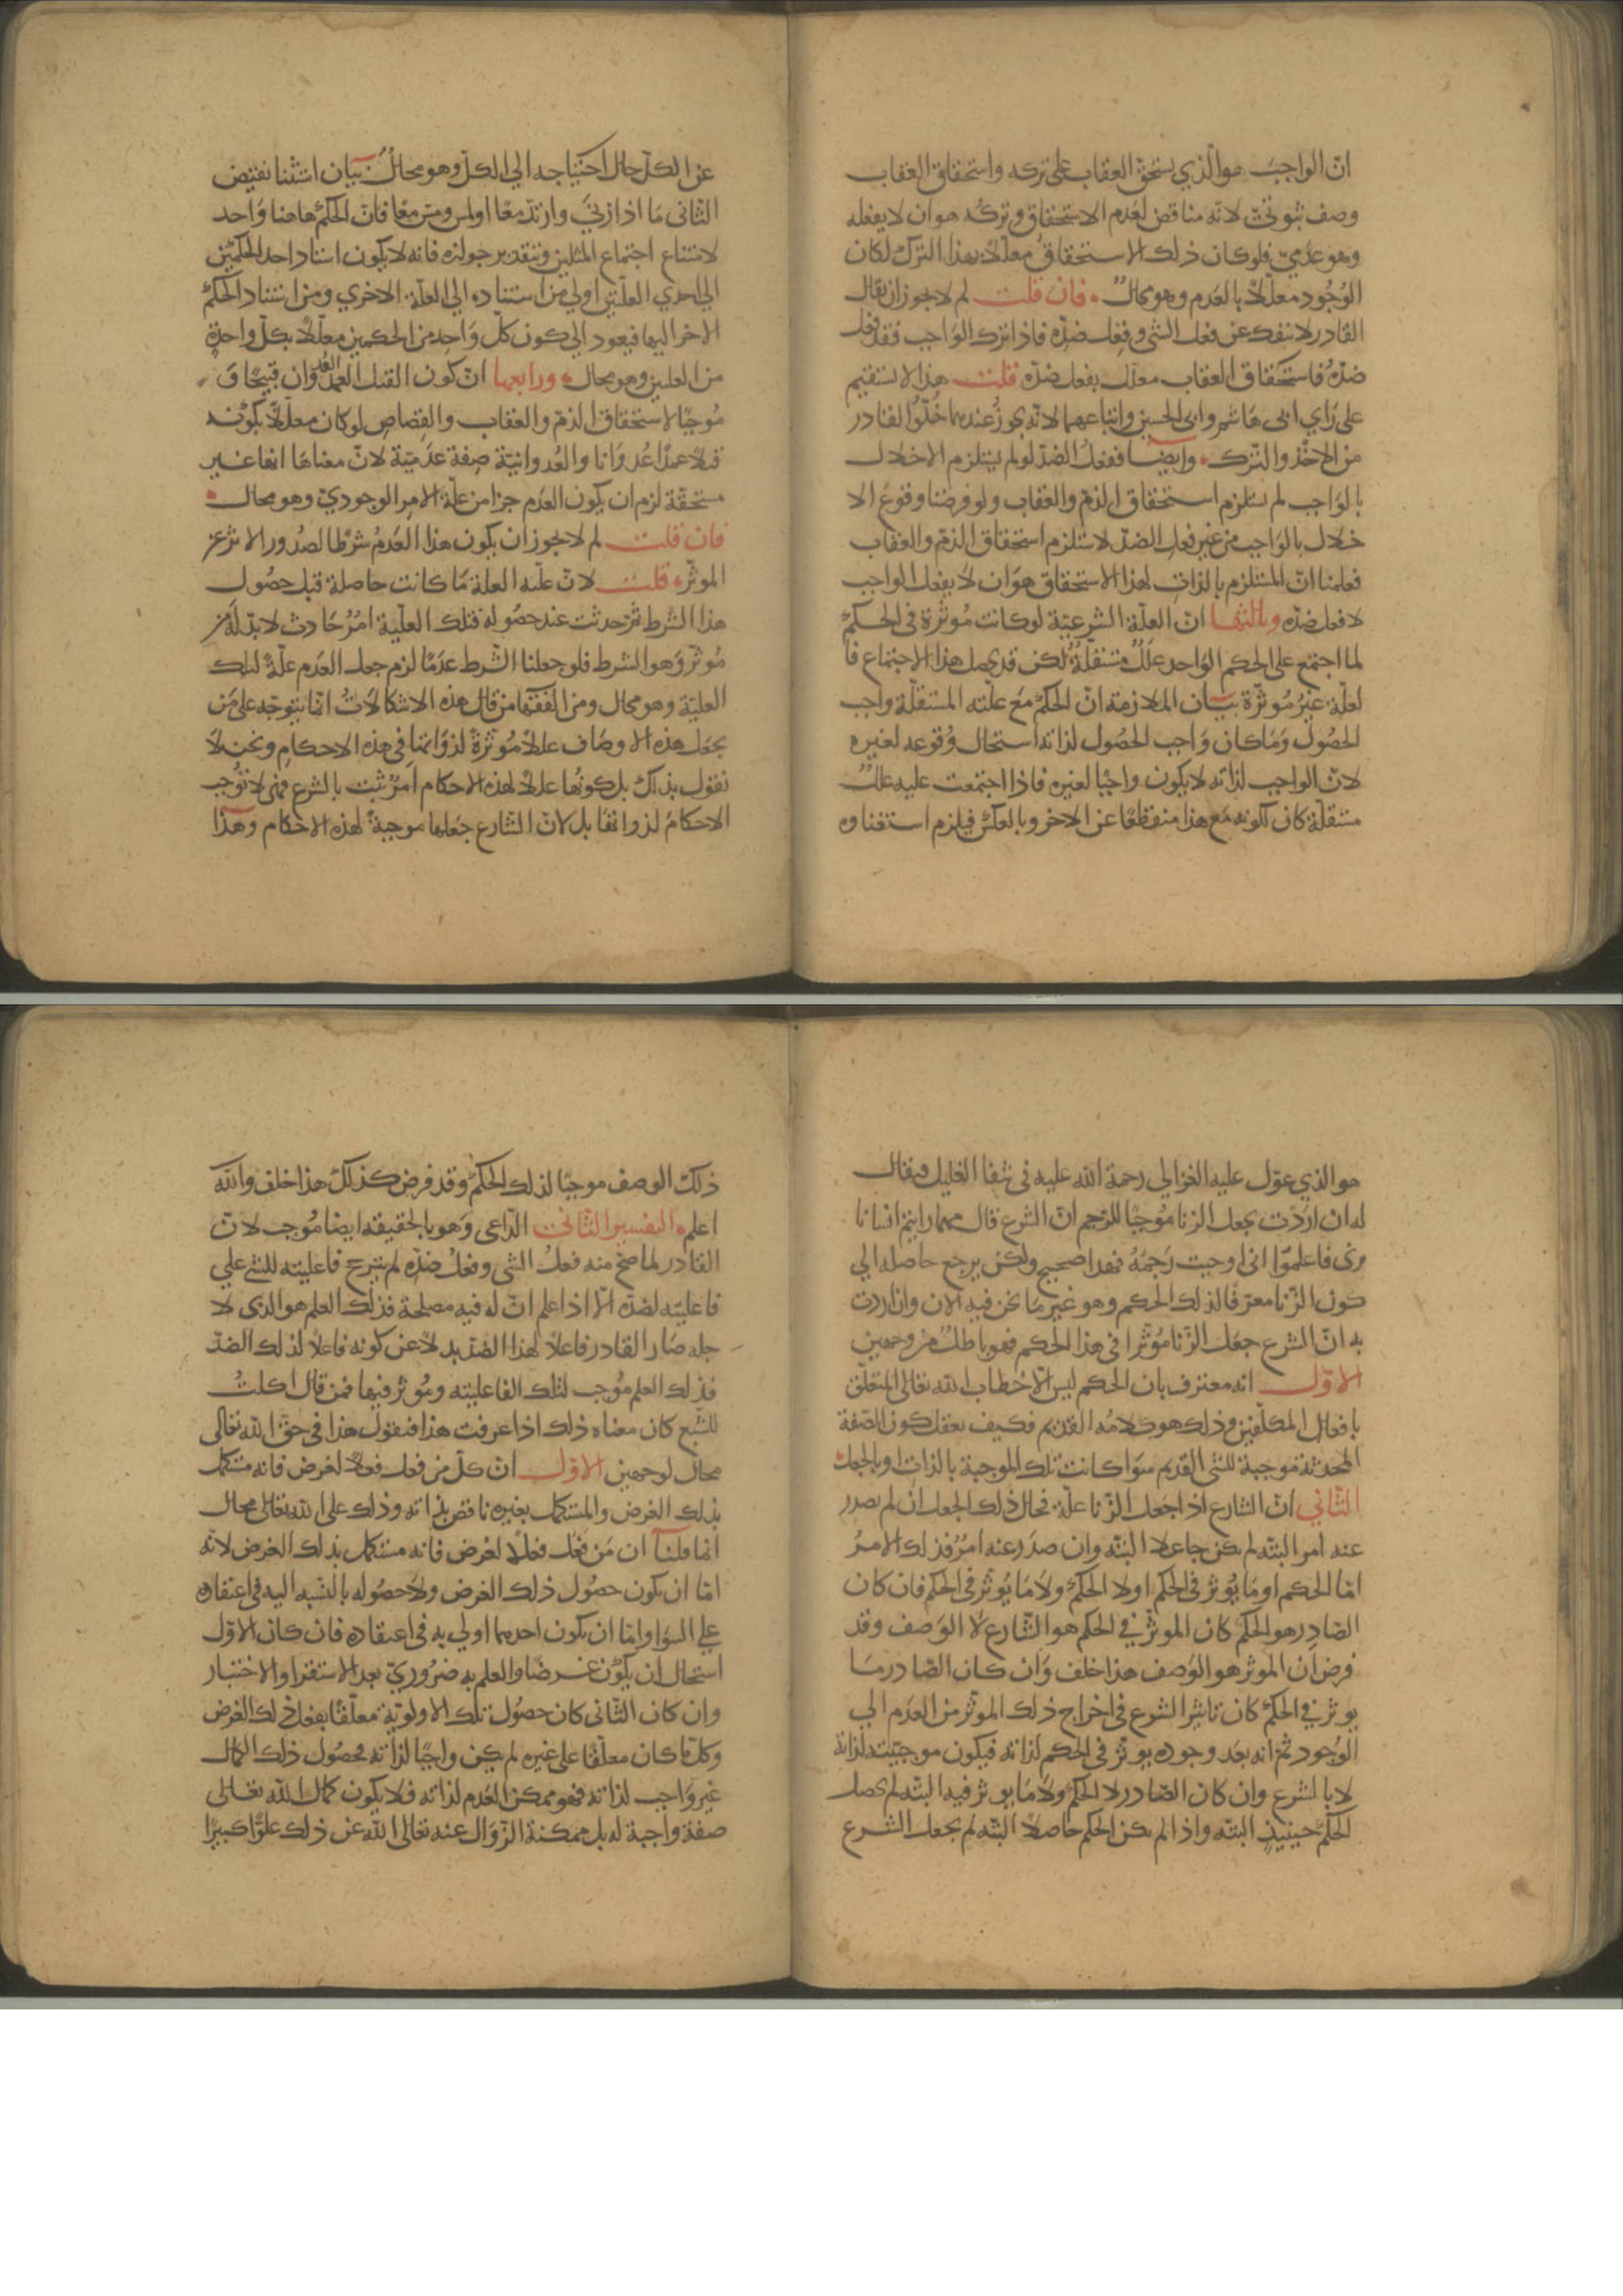 ان الواجب هو الذي يستحق العقاب على تركه واستحقاق العقاب
وصف ثبوتي لانه مناقض لعدم الاستحقاق وتركه هو ان لا يفعله
وهو عدمي فلو كان ذلك الاستحقاق معللا بهذا الترك لكان
الوجود معللا بالعدم وهو محال فان قلت لم لا يجوز ان يقال
القادر لا ينفك عن فعل الشي وفعل ضده فاذا ترك الواجب فقد فعل
ضده فاستحقاق العقاب معلل بفعل ضده قلت هذا لا يستقيم
على راي ابي هاشم وابي الحسين واتباعهما لانه يجوز عندهما خلو القادر
من الاخذ والترك وايضا ففعل الضد لو لم يستلزم الاخلال
بالواجب لم يستلزم استحقاق الذم والعقاب ولو فرضنا وقوع الا
خلال بالواجب من غير فعل الضد لاستلزم استحقاق الذم والعقاب
فعلمنا ان المستلزم بالذات لهذا الاستحقاق هو ان لا يفعل الواجب
لا فعل ضده وثالثها ان العلة الشرعية لو كانت موثرة في الحكم
لما اجتمع على الحكم الواحد علل مستقلة لكن قد يحصل هذا الاجتماع فا
لعلة غير موثرة بيان الملازمة ان الحكم مع علته المستقلة واجب
الحصول وما كان واجب الحصول لذاته استحال وقوعه لغيره
لان الواجب لذاته لا يكون واجبا لغيره فاذا اجتمعت عليه علل
مستقلة كان لكونه مع هذا منقطعا عن الاخر وبالعكس فيلزم استغناوه
عن الكل حال احتياجه الي الكل وهو محال بيان استثنا نقيض
الثاني ما اذا زني وارتد معا او لمس ومس معا فان الحكم هاهنا واحد
لامتناع اجتماع المثلين وبتقدير جوازه فانه لا يكون استناد احد الحكمين
الي احدي العلتين اولي من استناده الي العلة الاخري ومن استناد الحكم
الاخر اليها فيعود الي كون كل واحد من الحكمين معللا بكل واحدة
من العلتين وهو محال ورابعها ان كون القتل العمد العدوان قبيحا و
موجبا لاستحقاق الذم والعقاب والقصاص لو كان معللا بكونه
قتلا عمدا عدوانا والعدوانية صفة عدمية لان معناها انها غير
مستحقة لزم ان يكون العدم جزا من علة الامر الوجودي وهو محال
فان قلت لم لا يجوز ان يكون هذا العدم شرطا لصدور الاثر عن
الموثر قلت لان علية العلة ما كانت حاصلة قبل حصول
هذا الشرط ثم حدثت عند حصوله فتلك العلية امر حادث لا بد له من
موثر وهو الشرط فلو جعلنا الشرط عدما لزم جعل العدم علة لتلك
العلية وهو محال ومن الفقها من قال هذه الاشكالات انما يتوجه على من
يجعل هذه الاوصاف عللا موثرة لذواتها في هذه الاحكام ونحن لا
نقول بذلك بل كونها عللا لهذه الاحكام امر ثبت بالشرع فهي لا توجب
الاحكام لذواتها بل لان الشارع جعلها موجبة لهذه الاحكام وهذا
هو الذي عول عليه الغزالي رحمة الله عليه في شفا الغليل فيقال
له ان اردت بجعل الزنا موجبا للرجم ان الشرع قال مهما رايتم انسانا
زنى فاعلموا اني اوجبت رجمه فهذا صحيح ولكن يرجع حاصله الي
كون الزنا معرفا لذلك الحكم وهو غير ما نحن فيه الان وان اردت
به ان الشرع جعل الزنا موثرا في هذا الحكم فهو باطل من وجهين
الاول انه معترف بان الحكم ليس الا خطاب الله تعالى المتعلق
بافعال المكلفين وذلك هو كلامه القديم فكيف يعقل كون الصفة
المحدثة موجبة للشي القديم سوا كانت تلك الموجبة بالذات او بالجعل
الثاني ان الشارع اذا جعل الزنا علة فحال ذلك الجعل ان لم يصدر
عنه امر البتة لم يكن جاعلا البتة وان صدر عنه امر فذلك الامر
اما الحكم او ما يوثر في الحكم او لا الحكم ولا ما يوثر في الحكم فان كان
الصادر هو الحكم كان الموثر في الحكم هو الشارع لا الوصف وقد
فرض ان الموثر هو الوصف هذا خلف وان كان الصادر ما
يوثر في الحكم كان تاثير الشرع في اخراج ذلك الموثر من العدم الي
الوجود ثم انه بعد وجوده يوثر في الحكم لذاته فيكون موجبيته لذاته
لا بالشرع وان كان الصادر لا الحكم ولا ما يوثر فيه البتة لم يحصل
الحكم حينيذ البتة واذا لم يكن الحكم حاصلا البتة لم يجعل الشرع
ذلك الوصف موجبا لذلك الحكم وقد فرض كذلك هذا خلف والله
اعلم التفسير الثاني الداعي وهو بالحقيقة ايضا موجب لان
القادر لما صح منه فعل الشي وفعل ضده لم يترجح فاعليته للشي علي
فاعليته لضده الا اذا علم ان له فيه مصلحة فذلك العلم هو الذي لا
جله صار القادر فاعلا لهذا الضد بدلا عن كونه فاعلا لذلك الضد
فذلك العلم موجب لتلك الفاعلية وموثر فيها فمن قال اكلت
للشبع كان معناه ذلك اذا عرفت هذا فنقول هذا في حق الله تعالى
محال لوجهين الاول ان كل من فعل فعلا لغرض فانه مستكمل
بذلك الغرض والمستكمل بغيره ناقص بذاته وذلك على الله تعالى محال
انما قلنا ان من فعل فعلا لغرض فانه مستكمل بذلك الغرض لانه
اما ان يكون حصول ذلك الغرض ولا حصوله بالنسبة اليه في اعتقاده
علي السوا واما ان يكون احدهما اولي به في اعتقاده فان كان الاول
استحال ان يكون غرضا والعلم به ضروري بعد الاستقرا والاختبار
وان كان الثاني كان حصول تلك الاولوية معلقا بفعل ذلك الغرض
وكل ما كان معلقا على غيره لم يكن واجبا لذاته فحصول ذلك الكمال
غير واجب لذاته فهو ممكن العدم لذاته فلا يكون كمال الله تعالى
صفة واجبة له بل ممكنة الزوال عنه تعالى الله عن ذلك علوا كبيرا